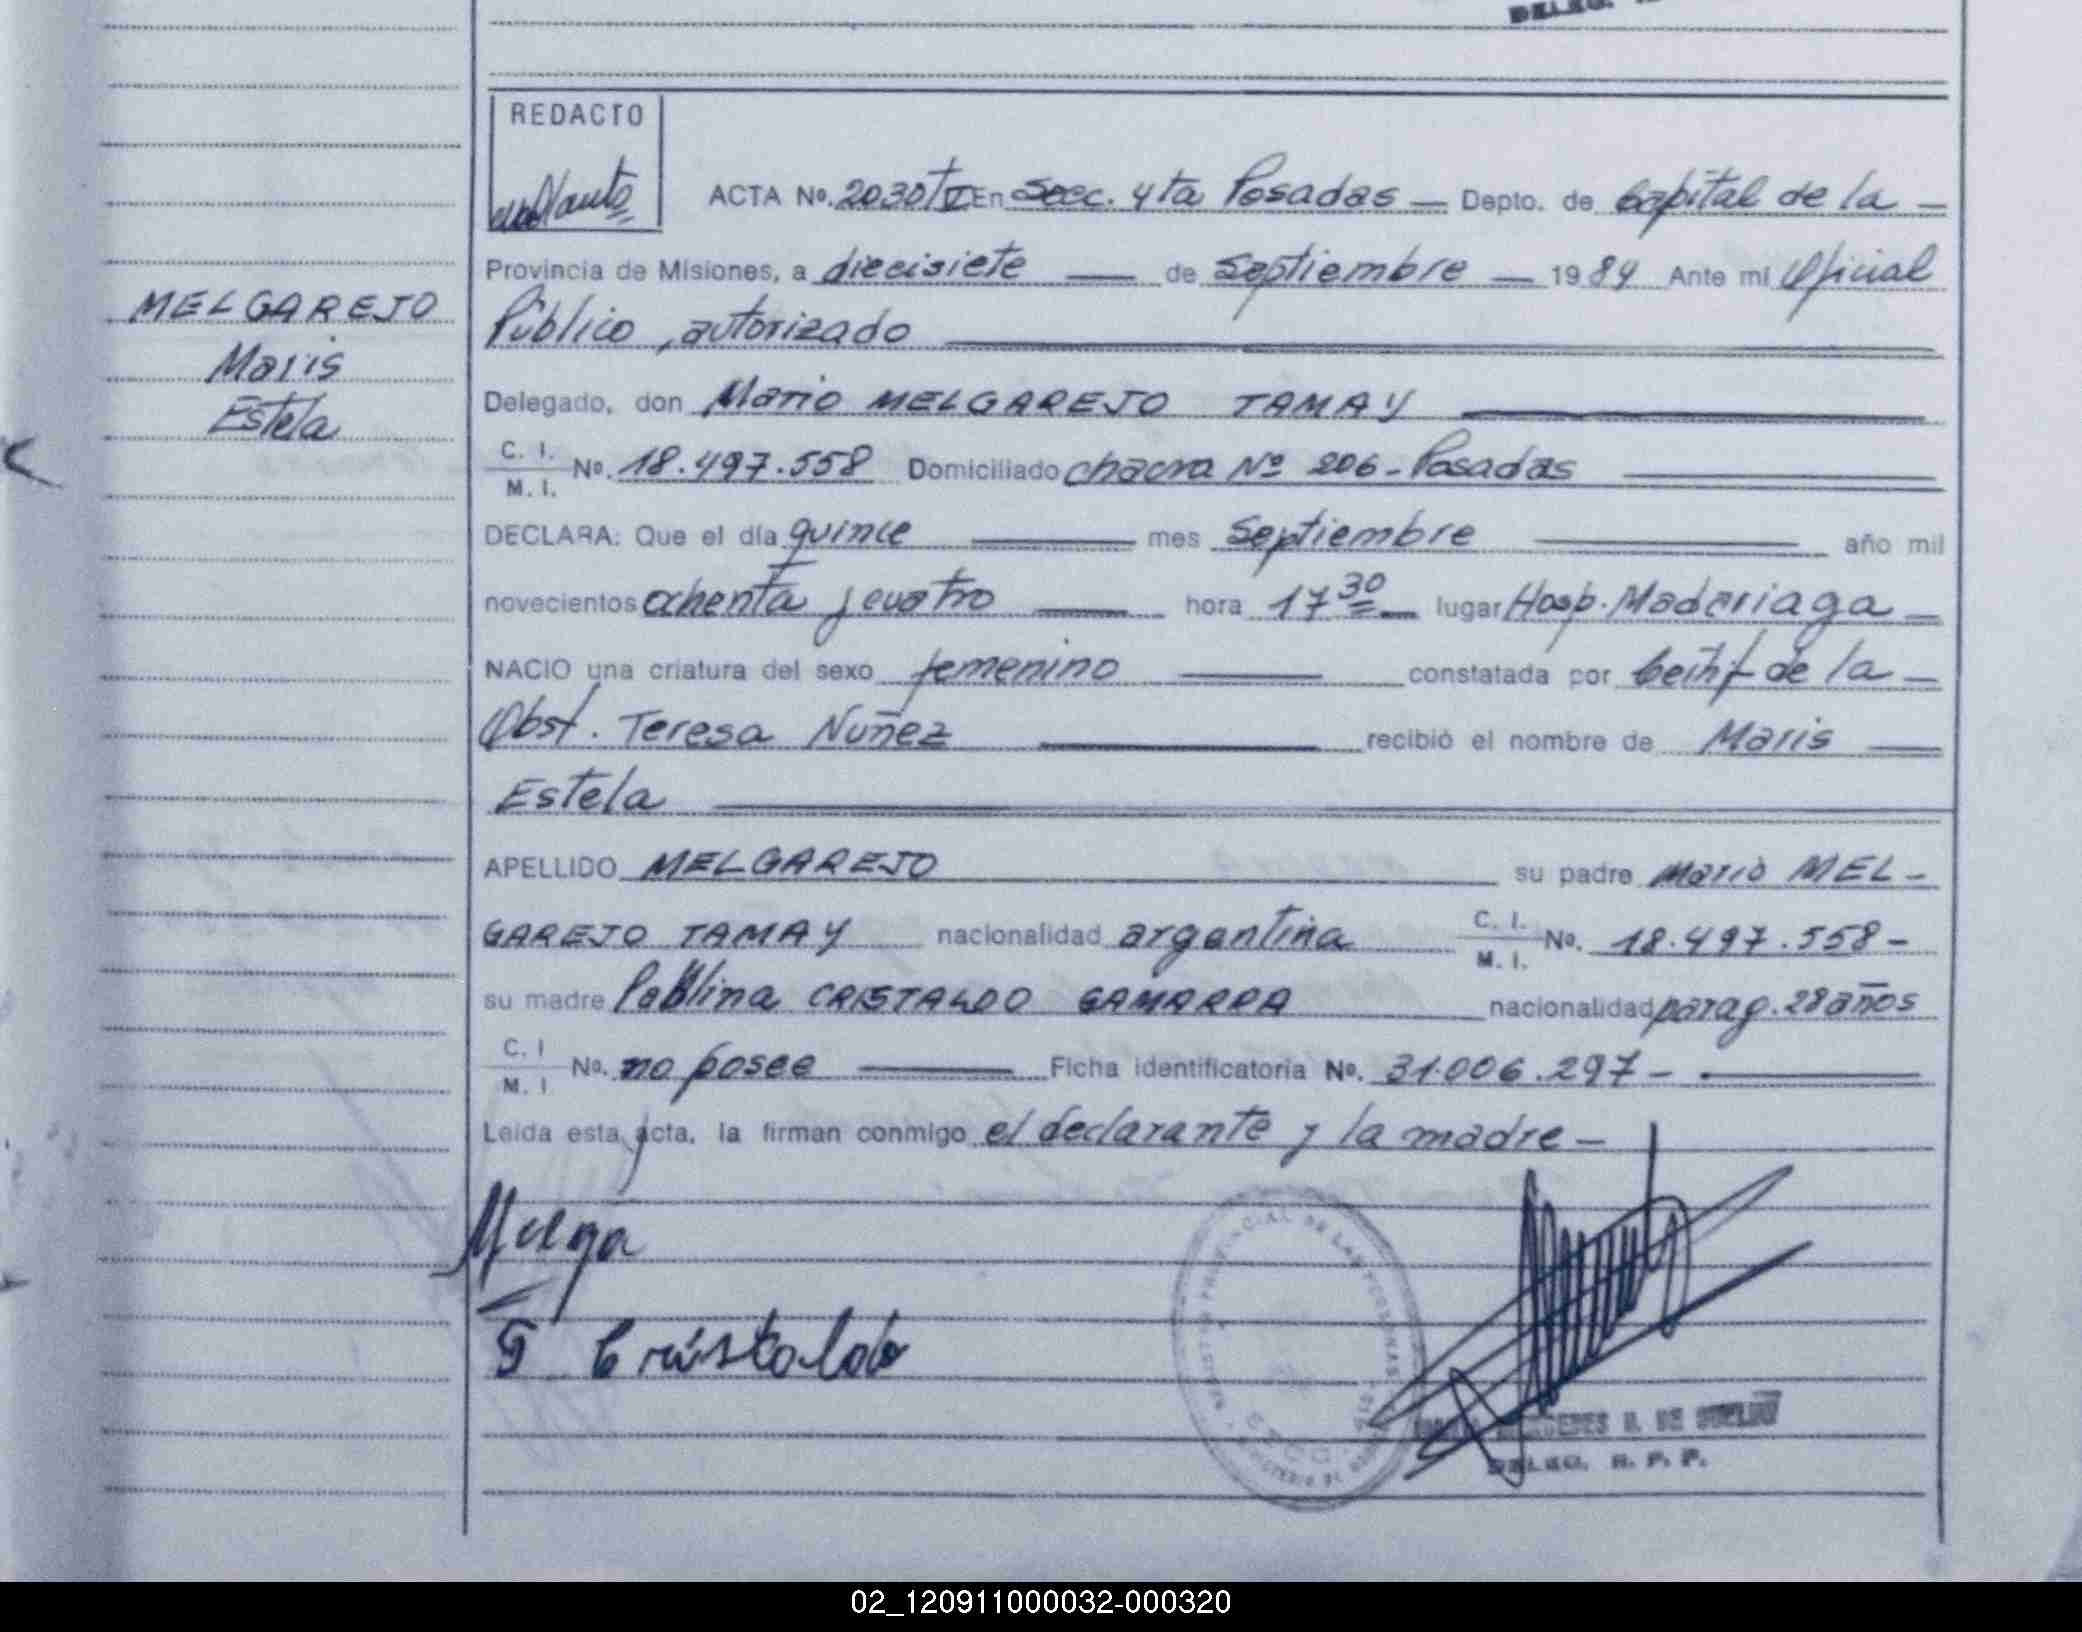 DELEG.
REDACTO
ACTA Nº. 2030 T V En Secc. 4ta Posadas — Depto. de Capital de la —
Provincia de Misiones, a diecisiete — de Septiembre — 1984 Ante mi Oficial
Público, autorizado
MELGAREJO
Maris
Estela
Delegado, don Mario MELGAREJO TAMAY
C. I. / M. I. Nº. 18.497.558 Domiciliado chacra Nº 206 - Posadas
DECLARA: Que el día quince — mes Septiembre — año mil
novecientos ochenta y cuatro — hora 17 30 — lugar Hosp. Madariaga —
NACIO una criatura del sexo femenino — constatada por Certif de la —
Obst. Teresa Nuñez — recibió el nombre de Maris —
Estela
APELLIDO MELGAREJO su padre Mario MEL-
GAREJO TAMAY nacionalidad argentina C. I. / M. I. Nº. 18.497.558 -
su madre Pablina CRISTALDO GAMARRA nacionalidad parag. 28 años
C. I / M. I Nº. no posee — Ficha identificatoria Nº. 31.006.297 -
Leída esta acta, la firman conmigo el declarante y la madre —
Melga
P Cristaldo
DE LAS PERSONAS
DELEG. R. P. P.
02_120911000032-000320